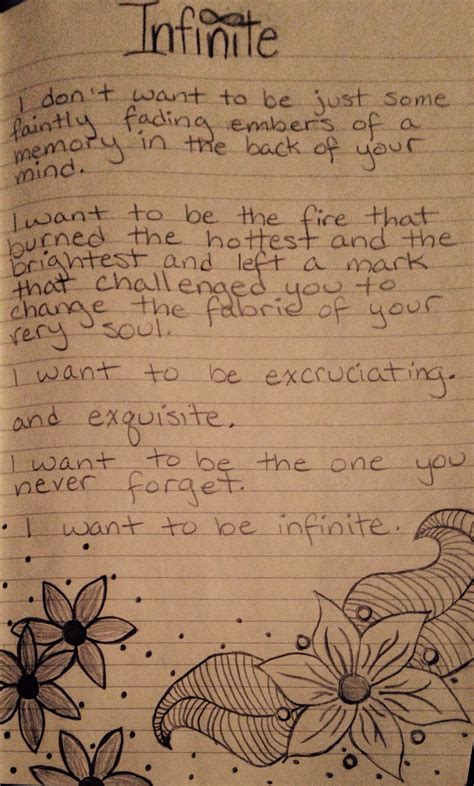 Infinite
I don't want to be just some
faintly fading embers of a
memory in the back of your
mind.
I want to be the fire that
burned the hottest and the
brightest and left a mark
that challenged you to
change the fabric of your
very soul.
I want to be excruciating.
and exquisite.
I want to be the one you
never forget.
I want to be infinite.